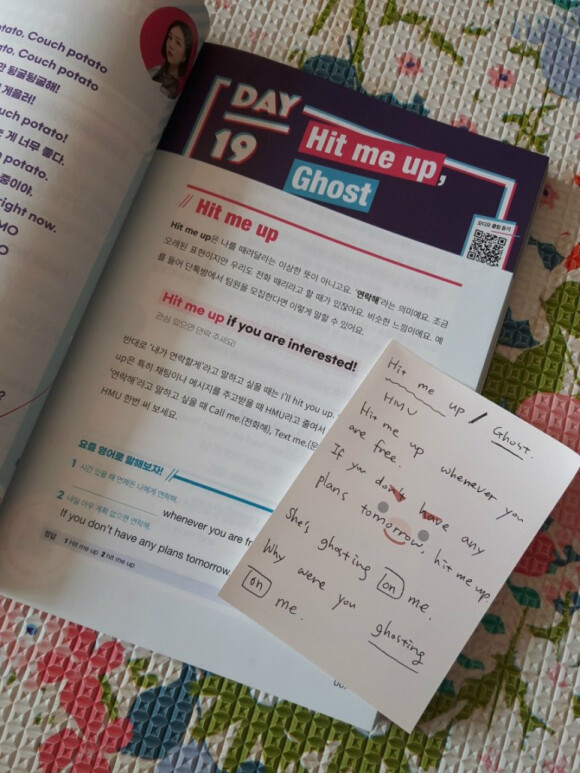 tato, Couch potato
ato. Couch potato
만 뒹굴뒹굴해!
게을러!
uch potato!
는 게 너무 좋다.
potato.
중이야.
right now.
MO
O
?
DAY
19
Hit me up,
Ghost
오디오 클립 듣기
Hit me up
Hit me up은 나를 때려달라는 이상한 뜻이 아니고요. ‘연락해’라는 의미예요. 조금
오래된 표현이지만 우리도 전화 때리라고 할 때가 있잖아요. 비슷한 느낌이에요. 예
를 들어 단톡방에서 팀원을 모집한다면 이렇게 말할 수 있어요.
Hit me up if you are interested!
관심 있으면 연락 주세요!
반대로 ‘내가 연락할게’라고 말하고 싶을 때는 I'll hit you up.
up은 특히 채팅이나 메시지를 주고받을 때 HMU라고 줄여서
‘연락해’라고 말하고 싶을 때 Call me.(전화해), Text me.(문
HMU 한번 써 보세요.
요즘 영어로 말해보자!
1 시간 있을 때 언제든 나에게 연락해.
whenever you are fr
2 내일 아무 계획 없으면 연락해.
If you don't have any plans tomorrow
정답 1 Hit me up 2 hit me up
Hit me up / Ghost.
HMU
Hit me up whenever you
are free.
If you don't have any
plans tomorrow, hit me up.
She's ghosting on me.
Why were you ghosting
on me.